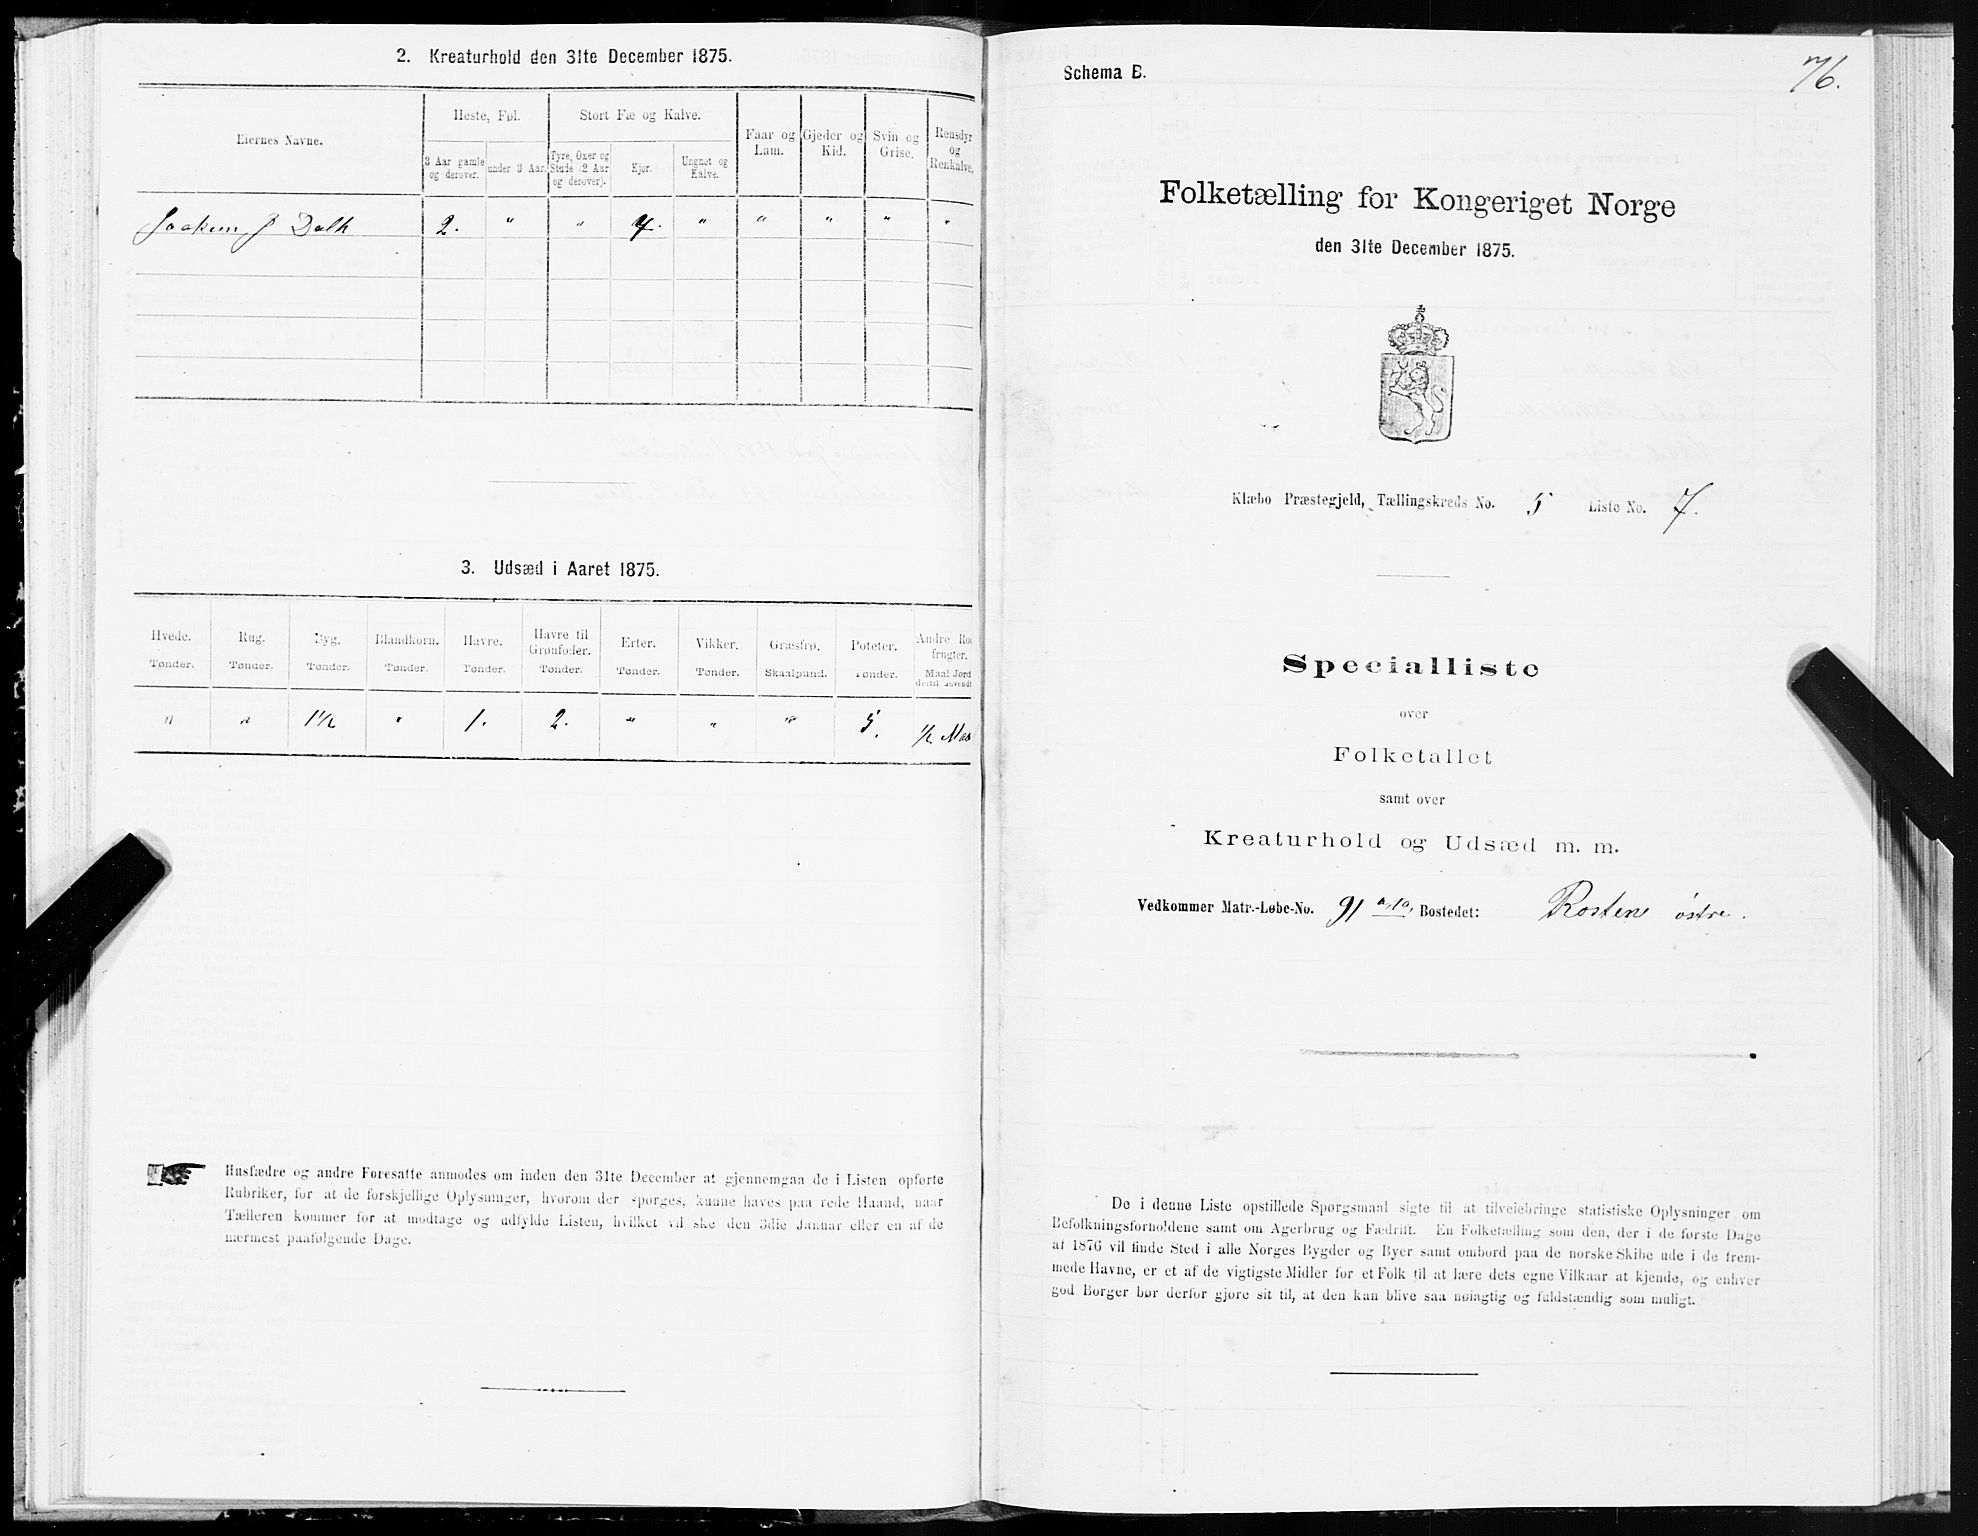 2. Kreaturhold den 31te December 1875.
Eiernes Navne.
Heste, Føl.
Stort Fæ og Kalve.
Faar og Lam.
Gjeder og Kid.
Svin og Grise.
Rensdyr og Renkalve.
3 Aar gamle og derover.
under 3 Aar.
Tyre, Oxer og Stude (2 Aar og derover).
Kjør.
Ungnøt og Kalve.
Joakim J Dalh 2. " " 4. " " " " "
3. Udsæd i Aaret 1875.
Hvede. Rug. Byg. Blandkorn. Havre. Havre til Grønfoder. Erter. Vikker. Græsfrø. Poteter. Andre Rod frugter.
Tønder. Tønder. Tønder. Tønder. Tønder. Tønder. Tønder. Tønder. Skaalpund. Tønder. Maal Jord dertil anvendt
" " 1½ " 1. 2. " " " 5. ½ Maa
Husfædre og andre Foresatte anmodes om inden den 31te December at gjennemgaa de i Listen opførte
Rubriker, for at de forskjellige Oplysninger, hvorom der spørges, kunne haves paa rede Haand, naar
Tælleren kommer for at modtage og udfylde Listen, hvilket vil ske den 3die Januar eller en af de
nærmest paafølgende Dage.
76.
Schema B.
Folketælling for Kongeriget Norge
den 31te December 1875.
Klæbo Præstegjeld, Tællingskreds No. 5 Liste No. 7.
Specialliste
over
Folketallet
samt over
Kreaturhold og Udsæd m. m.
Vedkommer Matr.-Løbe-No. 91 a, 1a, Bostedet: Rostene østre.
De i denne Liste opstillede Spørgsmaal sigte til at tilveiebringe statistiske Oplysninger om
Befolkningsforholdene samt om Agerbrug og Fædrift. En Folketælling som den, der i de første Dage
af 1876 vil finde Sted i alle Norges Bygder og Byer samt ombord paa de norske Skibe ude i de frem-
mede Havne, er et af de vigtigste Midler for et Folk til at lære dets egne Vilkaar at kjende, og enhver
god Borger bør derfor gjøre sit til, at den kan blive saa nøiagtig og fuldstændig som muligt.